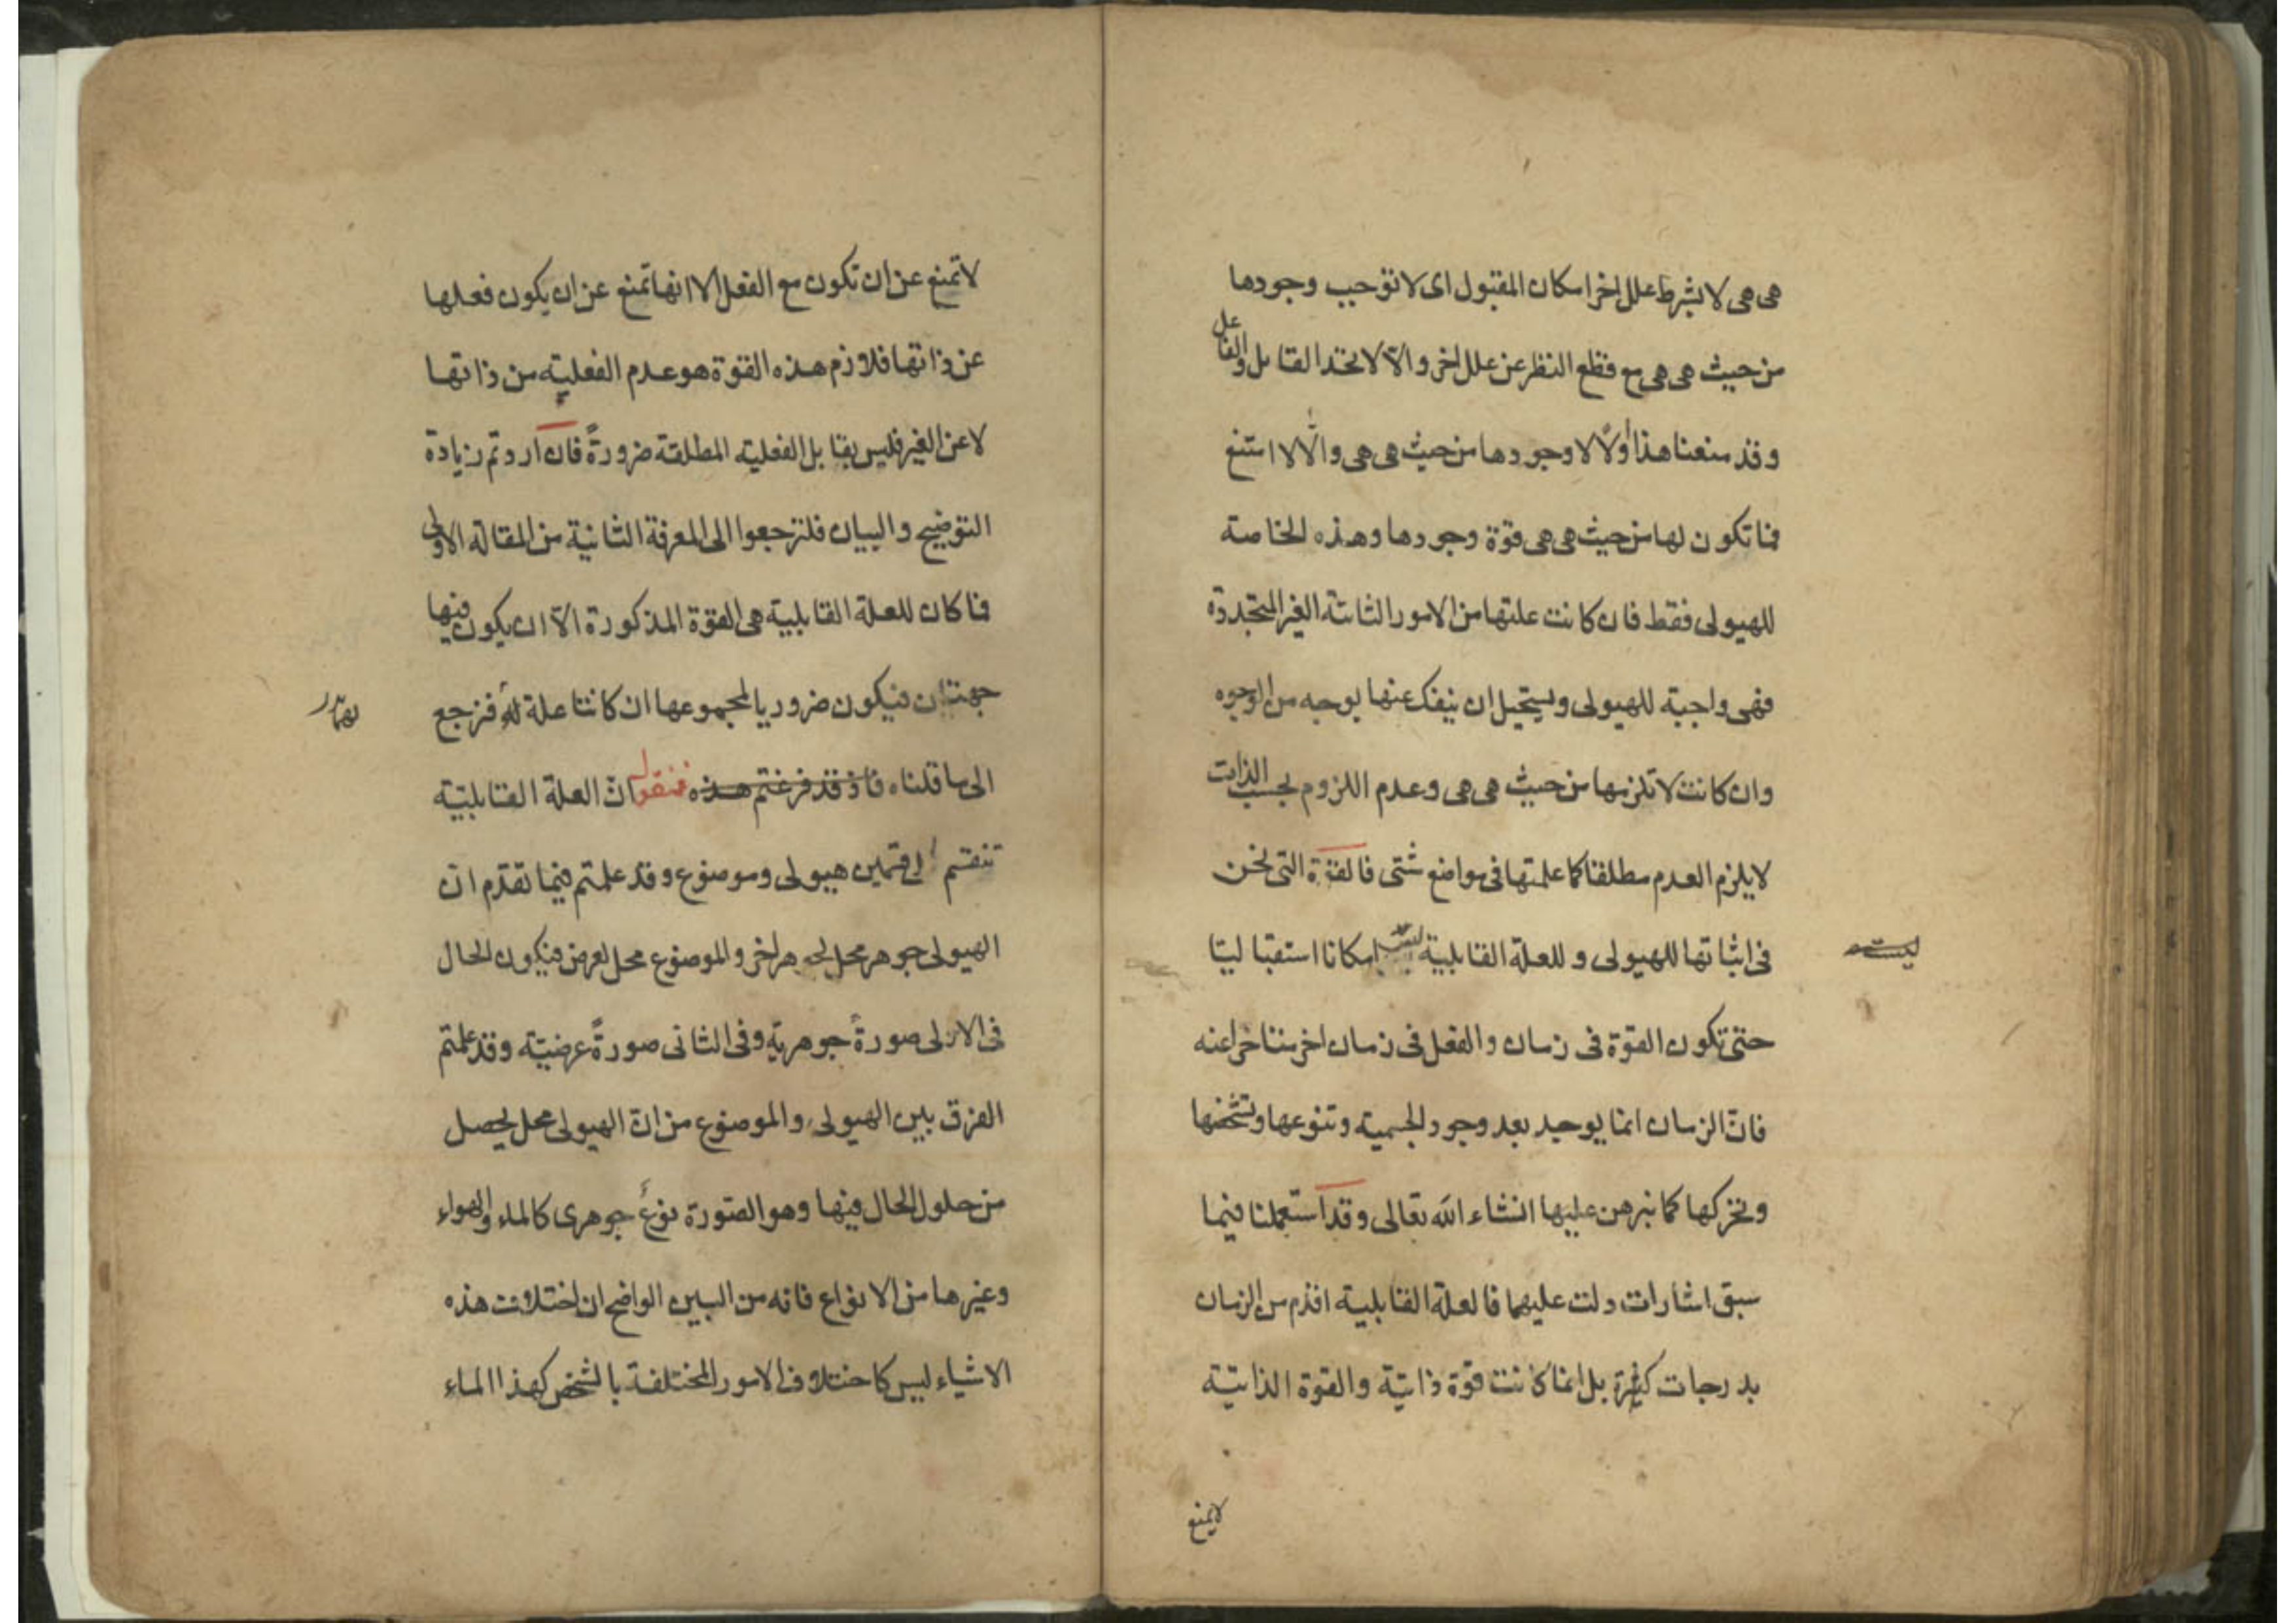 هى هى لا بشرط علل اخر امكان المقبول اى لا توجب وجودها
من حيث هى هى مع قطع النظر عن علل اخر والّا لاتحد القابل والفاعل
وقد منعنا هذا أولًا لا وجودها من حيث هى هى والّا لامتنع
فما تكون لها من حيث هى هى قوة وجودها وهذه الخاصة
للهيولى فقط فان كانت علتها من الامور الثابتة الغير المتجددة
فهى واجبة للهيولى ويستحيل ان ينفك عنها بوجه من الوجوه
وان كانت لا تلزمها من حيث هى هى وعدم اللزوم بحسب الذات
لا يلزم العدم مطلقا كما علمتها فى مواضع شتى فالقوة التى نحن
فى اثباتها للهيولى و للعلة القابلية ليست امكانا استقباليا
ليست
حتى تكون القوة فى زمان والفعل فى زمان اخر متاخرا عنه
فانّ الزمان انما يوجد بعد وجود الجسمية وتنوعها وتشخصها
وتحركها كما نبرهن عليها انشاء الله تعالى وقد استعملنا فيما
سبق اشارات دلت عليها فالعلة القابلية اقدم من الزمان
بدرجات كثيرة بل انما كانت قوة ذاتيّة والقوة الذاتيّة
لا تمنع
لا تمنع عن ان تكون مع الفعل الا انها تمنع عن ان يكون فعلها
عن ذاتها فلازم هذه القوة هو عدم الفعلية من ذاتها
لا عن الغير فليس يقابل الفعلية المطلقة ضرورةً فان اردتم زيادة
التوضيح والبيان فلترجعوا الى المعرفة الثانية من المقالة الاولى
فما كان للعلة القابلية هى القوة المذكورة الّا ان يكون فيها
جهتان فيكون ضروريا لمجموعها ان كانتا علة له فنرجع
الى ما قلناه فاذ قد فرغتم هذه فنقول انّ العلة القابليّة
تنقسم الى قسمين هيولى وموضوع وقد علمتم فيما تقدم ان
الهيولى جوهر محل لجوهر اخر والموضوع محل لعرض فيكون الحال
فى الاولى صورةً جوهرية وفى الثانى صورةً عرضيّة وقد علمتم
الفرق بين الهيولى والموضوع من انّ الهيولى محل يحصل
من حلول الحال فيها وهو الصورة نوعٌ جوهرى كالماء والهواء
وغيرها من الانواع فانه من البين الواضح ان اختلافت هذه
الاشياء ليس كاختلاف الامور المختلفة بالشخص كهذا الماء